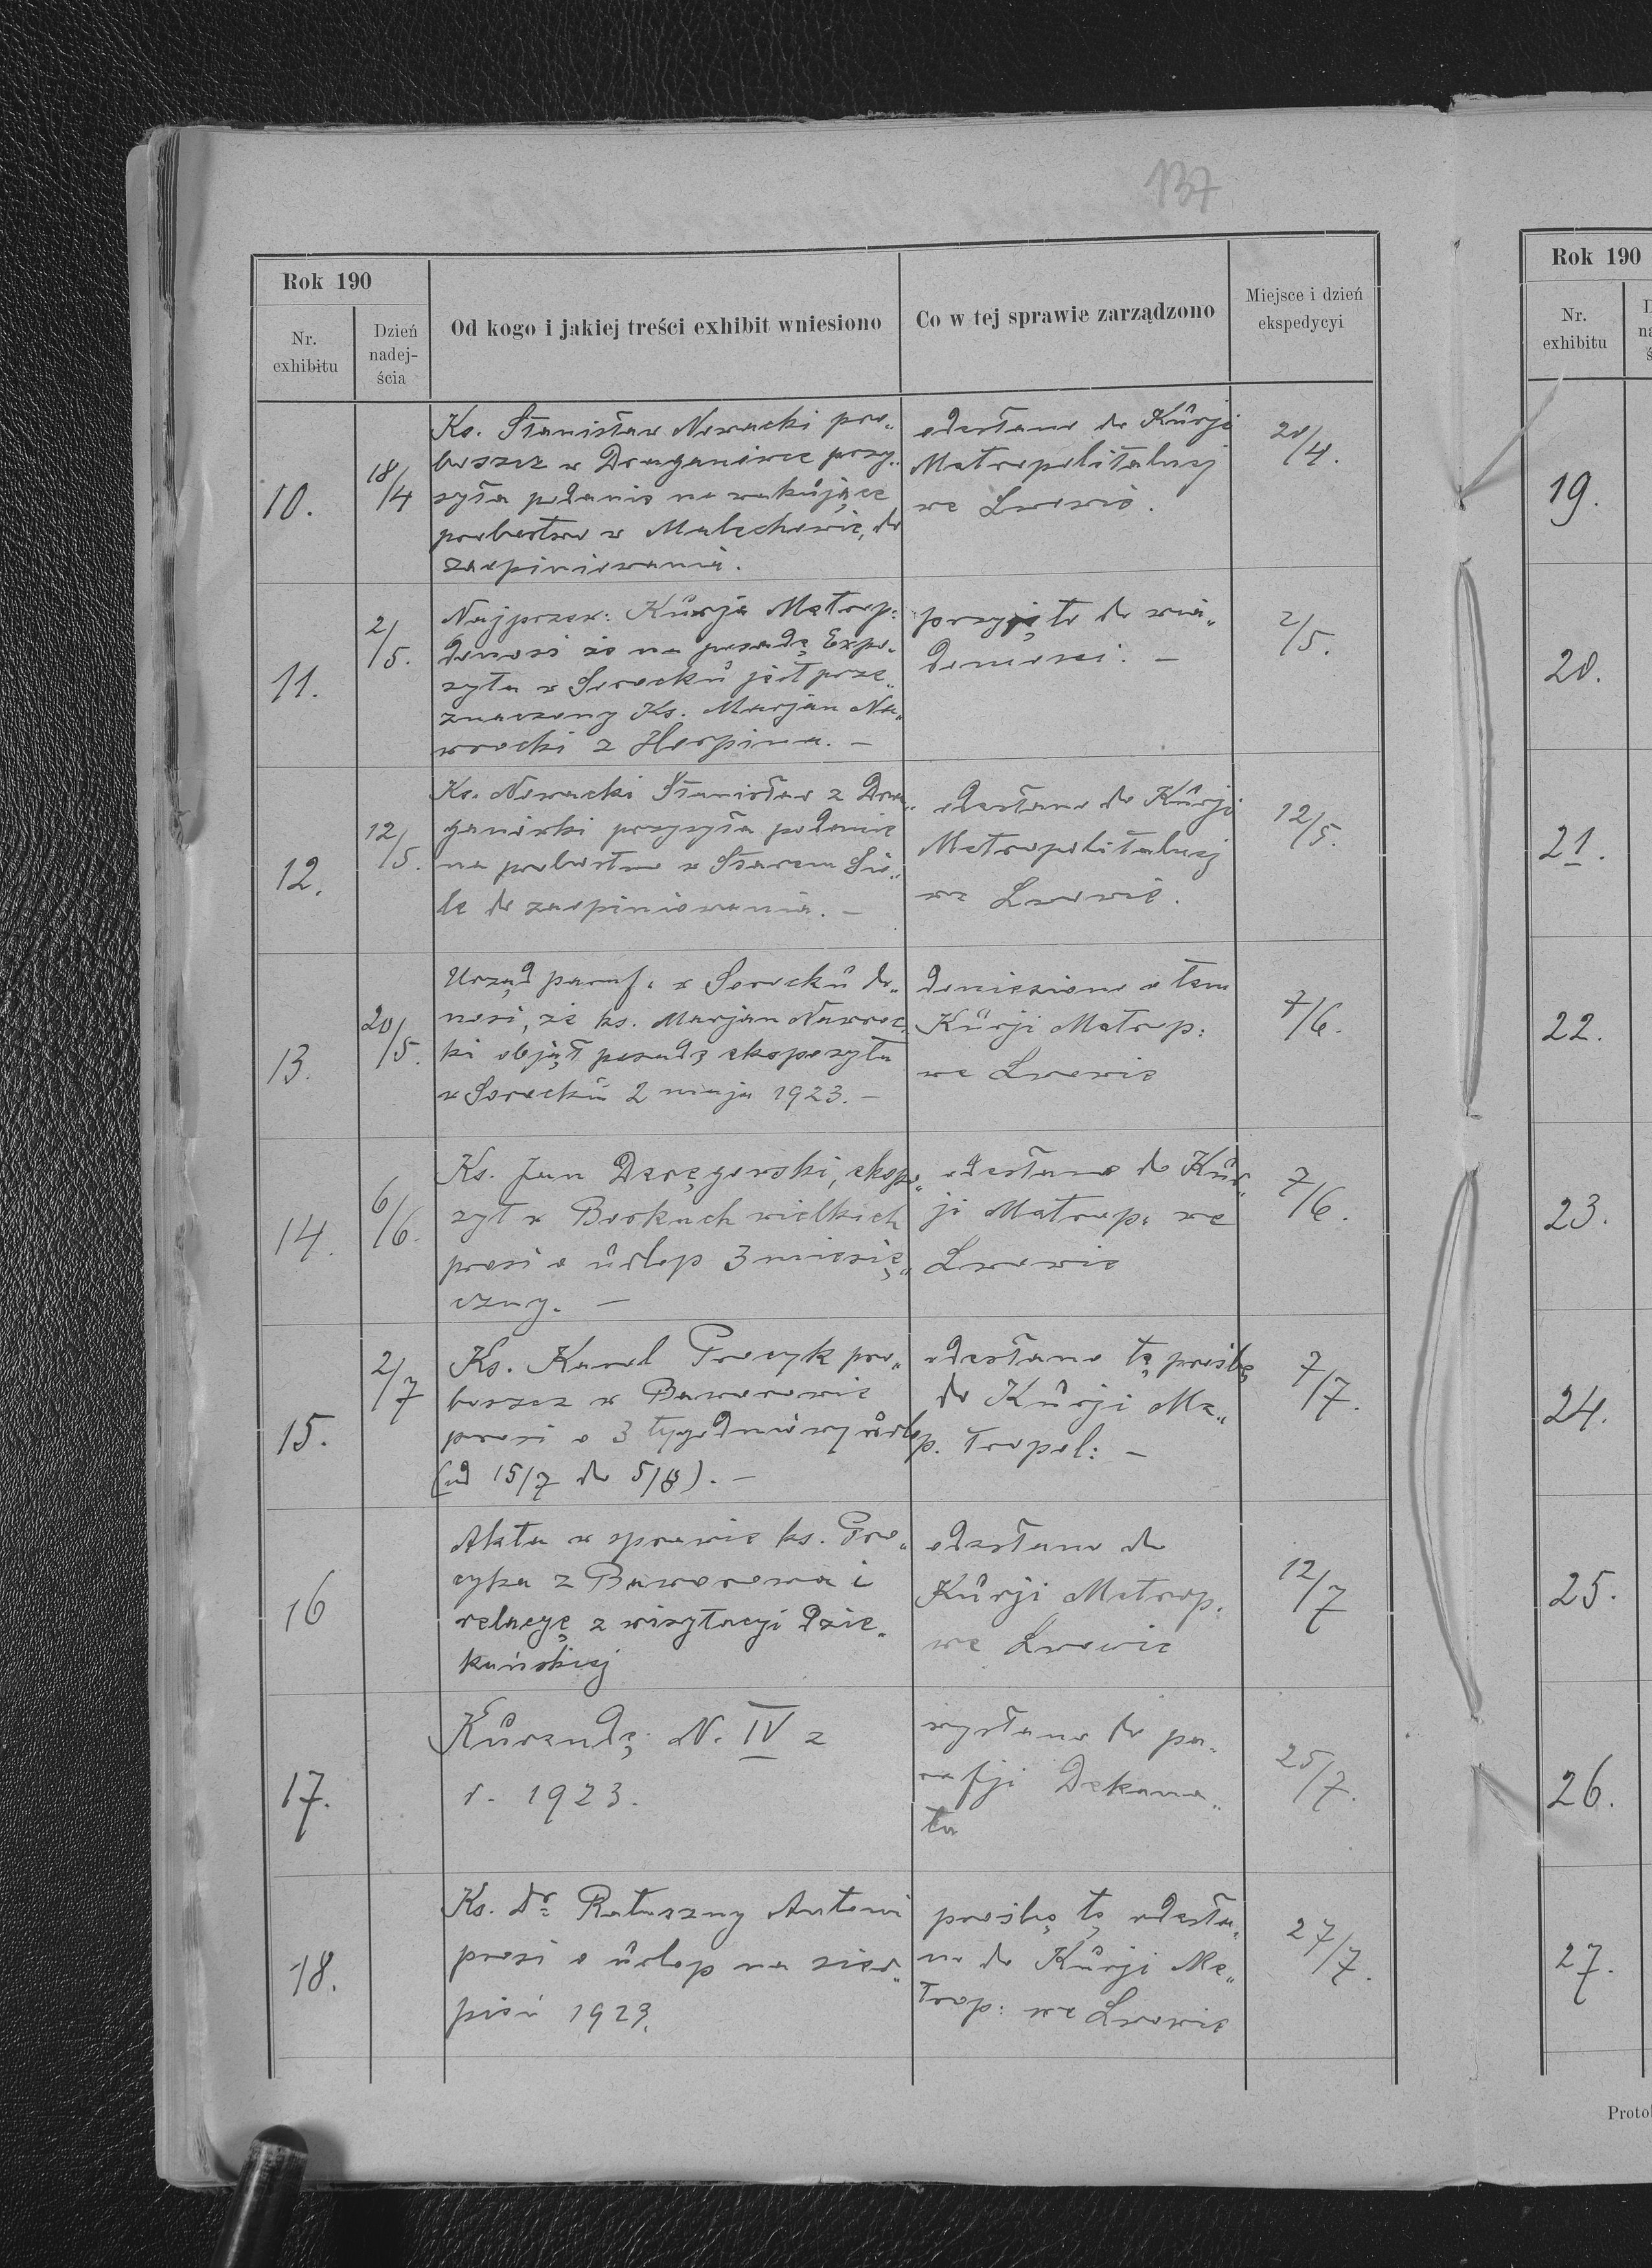 137
Rok 190
Nr. exhibitu
Dzień nadej-ścia
Od kogo i jakiej treści exhibit wniesiono
Co w tej sprawie zarządzono
Miejsce i dzień ekspedycyi
10.
18/4
Ks. Stanisław Nowacki pro„
boszcz w Draganówce przy„
syła podanie na wakujące
probostwo w Malechowie, do
zaopiniowania.
odesłano do Kůrji
Metropolitalnej
we Lwowie.
20/4.
11.
2/5.
Najprzew: Kůrja Metrop:
donosi że na posadę Expo„
zyta w Sorocků jest prze„
znaczony Ks. Marjan Na„
wrocki z Horpina. —
przyjęto do wia„
domości. —
2/5.
12.
12/5.
Ks. Nowacki Stanisław z Dra„
ganówki przysyła podanie
na probostwo w Starem Sio„
le do zaopiniowania. —
odesłano do Kůrji
Metropolitalnej
we Lwowie.
12/5.
13.
20/5.
Urząd paraf: w Sorocků do„
nosi, że ks. Marjan Nawroc„
ki objął posadę ekspozyta
w Sorocků 2 maja 1923. —
doniesiono o tem
Kůrji Metrop:
we Lwowie
7/6.
14.
6/6.
Ks. Jan Deręgowski, ekspo„
zyt w Borkach wielkich
prosi o ůrlop 3 miesię„
czny. —
odesłano do Kůr„
ji Metrop: we
Lwowie
7/6.
15.
2/7
Ks. Karol Procyk pro„
boszcz w Baworowie
prosi o 3 tygodniowy ůrlop.
(od 15/7 do 5/8). —
odesłano tę prośbę
do Kůrji Me„
tropol: —
7/7.
16
Akta w sprawie ks. Pro„
cyka z Baworowa i
relacyę z wizytacyi dzie„
kańskiej
odesłano do
Kůrji Metrop:
we Lwowie
12/7
17.
Kůrendę N. IV z
r. 1923.
wysłano do pa„
rafji Dekana„
tu
25/7.
18.
Ks. Dr Ratuszny Antoni
prosi o ůrlop na sier„
pień 1923.
prośbę tę odesła„
no do Kůrji Me„
trop: we Lwowie
27/7.
Rok 190
Nr. exhibitu
19.
20.
21.
22.
23.
24.
25.
26.
27.